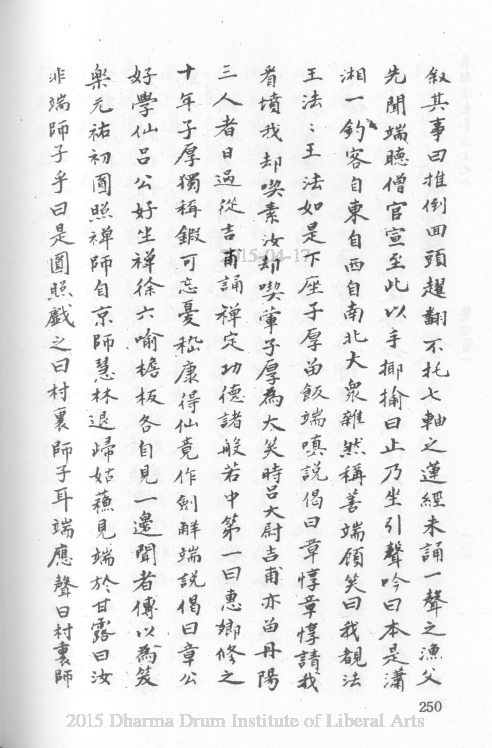 敘其事曰推倒回頭趯翻不托七軸之蓮經未誦一聲之漁父
先聞端聽僧官宣至此以手揶揄曰止乃坐引聲吟曰本是瀟
湘一釣客自東自西自南北大衆雜然稱善端顧笑曰我覩法
王法〻王法如是下座子厚留飯端嗔說偈曰章惇章惇請我
看墳我却喫素汝却喫葷子厚為大笑時呂大尉吉甫亦留丹陽
三人者日過從吉甫誦禪定功德諸般若中第一曰惠卿修之
十年子厚獨稱鍛可忘憂嵇康得仙竟作劍解端說偈曰章公
好學仙呂公好坐禪徐六喻檐板各自見一邊聞者傳以為笑
樂元祐初圓照禪師自京師慧林退歸姑蘓見端於甘露曰汝
非端師子乎曰是圓照戲之曰村裏師子耳端應聲曰村裏師
250
2015-04-17
2015 Dharma Drum Institute of Liberal Arts